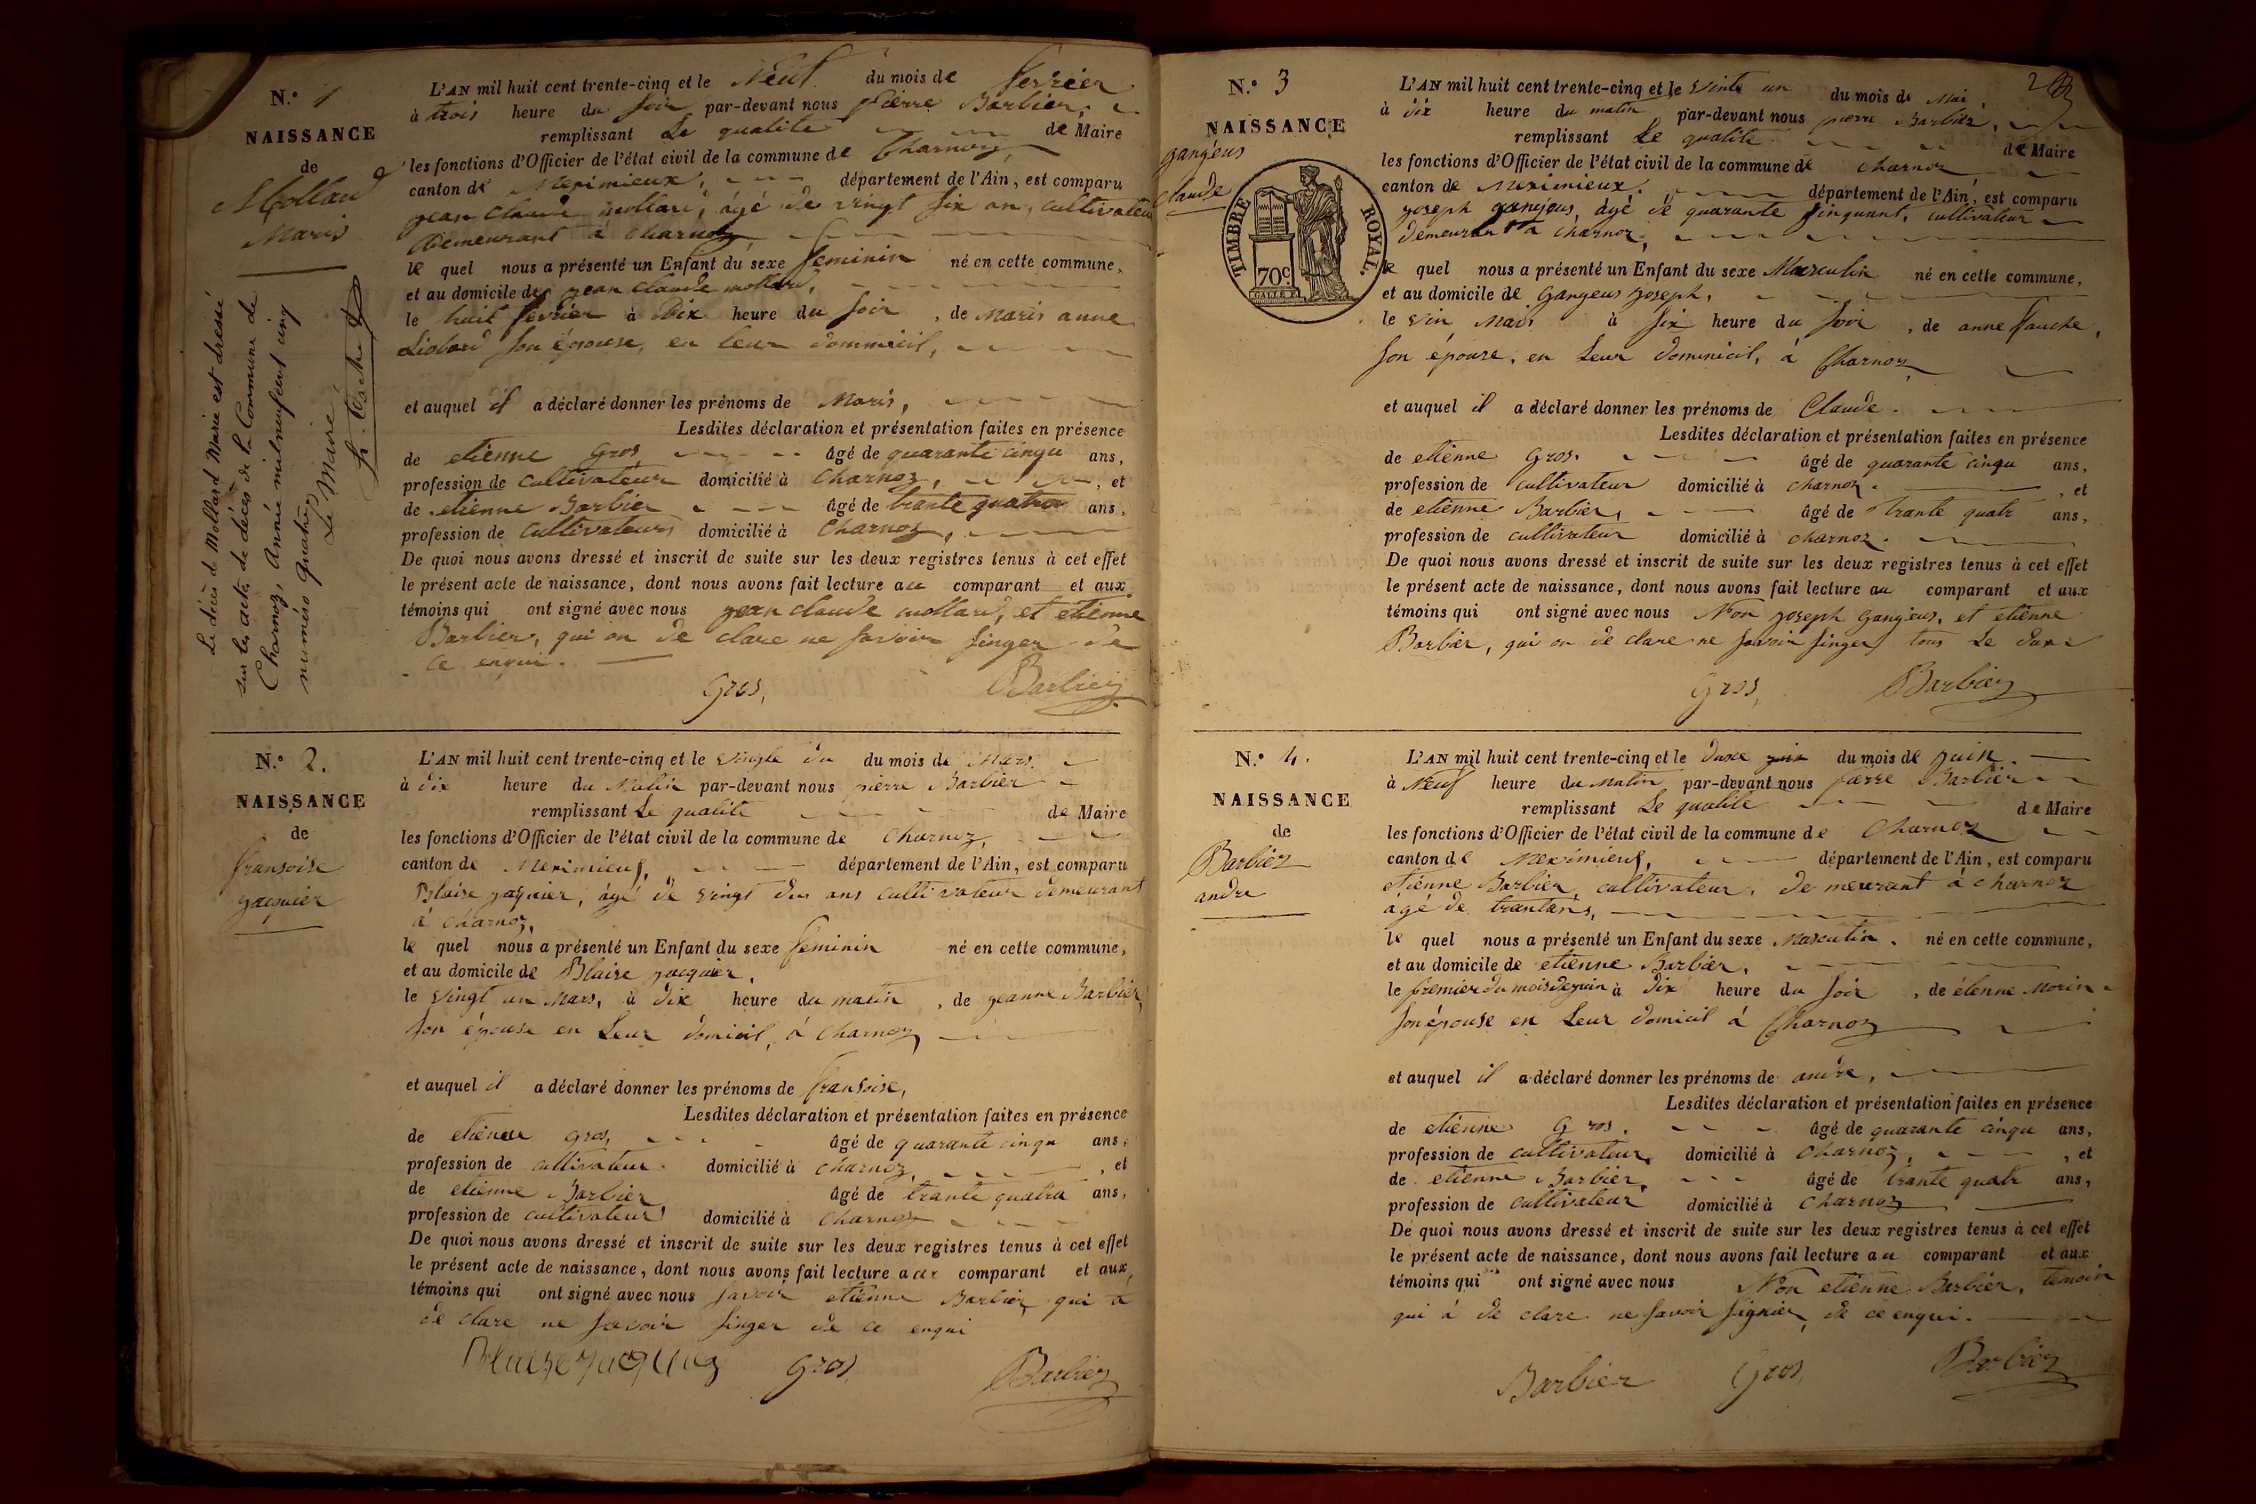 N.° 1
NAISSANCE
de
Mollard
Marie
Le décès de Mollard Marie est dressé
sur les actes de décès de la Commune de
Charnoz, Année mil neuf cent cinq
numéro quatre
Le Maire
L'AN mil huit cent trente-cinq et le Neuf du mois de fevrier
à trois heure du soir par-devant nous pierre Barbier,
remplissant Le qualite de Maire
les fonctions d'Officier de l'état civil de la commune de Charnoz,
canton de Meximieux, département de l'Ain, est comparu
jean claude mollard, âgé de vingt six an, cultivateur
Demeurant à Charnoz,
le quel nous a présenté un Enfant du sexe feminin né en cette commune,
et au domicile de jean claude mollard,
le huit fevrier à Dix heure du soir, de Marie anne
Liobard son épouse, en leur dommicil,
et auquel il a déclaré donner les prénoms de Marie,
Lesdites déclaration et présentation faites en présence
de etienne Gros âgé de quarante cinqu ans,
profession de cultivateur domicilié à Charnoz, et
de etienne Barbier âgé de trante quatre ans,
profession de cultivateur domicilié à Charnoz,
De quoi nous avons dressé et inscrit de suite sur les deux registres tenus à cet effet
le présent acte de naissance, dont nous avons fait lecture au comparant et aux
témoins qui ont signé avec nous jean claude mollard, et etienne
Barbier, qui on de clare ne savoir singer de
ce enqui.
Gros, Barbier
N.° 2.
NAISSANCE
de
fransoise
jacquier
L'AN mil huit cent trente-cinq et le vingte du du mois de Mars
à dix heure du Matin par-devant nous pierre Barbier
remplissant Le qualite de Maire
les fonctions d'Officier de l'état civil de la commune de Charnoz,
canton de Meximieuf, département de l'Ain, est comparu
Blaise jaquier, âgé de vingt dus ans cultivateur demeurant
à charnoz,
le quel nous a présenté un Enfant du sexe feminin né en cette commune,
et au domicile de Blaise jacquier,
le vingt un Mars, à dix heure du matin, de jeanne Barbier,
son épouse en Leur domicil, à Charnoz,
et auquel il a déclaré donner les prénoms de fransoise,
Lesdites déclaration et présentation faites en présence
de etienne gros, âgé de quarante cinqu ans,
profession de cultivateur domicilié à charnoz, et
de etienne Barbier âgé de trante quatre ans,
profession de cultivateur domicilié à Charnoz
De quoi nous avons dressé et inscrit de suite sur les deux registres tenus à cet effet
le présent acte de naissance, dont nous avons fait lecture au comparant et aux
témoins qui ont signé avec nous savoir etienne Barbier, qui a
de clare ne savoir singer de ce enqui
Gros, Barbier
N.° 3
NAISSANCE
gangeus
claude
TIMBRE ROYAL.
70c
L'AN mil huit cent trente-cinq et le vinte un du mois de Mai,
à dix heure du matin par-devant nous pierre Barbier,
remplissant Le qualite de Maire
les fonctions d'Officier de l'état civil de la commune de charnoz
canton de Meximieux, département de l'Ain, est comparu
joseph gangeus, âgé de quarante sinquant, cultivateur
demeurant à charnoz,
le quel nous a présenté un Enfant du sexe Masculin né en cette commune,
et au domicile de gangeus joseph,
le vin Mais à six heure du soir, de anne fauche,
son épouse, en Leur dominicil, à Charnoz,
et auquel il a déclaré donner les prénoms de Claude.
Lesdites déclaration et présentation faites en présence
de etienne Gros. âgé de quarante cinqu ans,
profession de cultivateur domicilié à charnoz, et
de etienne Barbier, âgé de trante quatr ans,
profession de cultivateur domicilié à charnoz.
De quoi nous avons dressé et inscrit de suite sur les deux registres tenus à cet effet
le présent acte de naissance, dont nous avons fait lecture au comparant et aux
témoins qui ont signé avec nous Non joseph gangeus, et etienne
Barbier, qui on de clare ne savoir singer, tous Le duxe
Gros, Barbier
N.° 4.
NAISSANCE
de
Barbier
andre
L'AN mil huit cent trente-cinq et le duxe juin du mois de juin
à Neuf heure du Matin par-devant nous pierre Barbier
remplissant Le qualite de Maire
les fonctions d'Officier de l'état civil de la commune de Charnoz
canton de Meximieuf, département de l'Ain, est comparu
etienne Barbier cultivateur, de meurant à charnoz
âgé de trantans,
le quel nous a présenté un Enfant du sexe Masculin. né en cette commune,
et au domicile de etienne Barbier,
le premier du mois de juin à dix heure du soir, de étenne Morin
son épouse en Leur domicil à Charnoz
et auquel il a déclaré donner les prénoms de andre,
Lesdites déclaration et présentation faites en présence
de etienne Gros. âgé de quarante cinqu ans,
profession de cultivateur, domicilié à Charnoz, et
de etienne Barbier, âgé de trante quatr ans,
profession de cultivateur domicilié à Charnoz
De quoi nous avons dressé et inscrit de suite sur les deux registres tenus à cet effet
le présent acte de naissance, dont nous avons fait lecture au comparant et aux
témoins qui ont signé avec nous Non etienne Barbier, temoin
qui à de clare ne savoir signier, de ce enqui.
Barbier Gros, Barbier